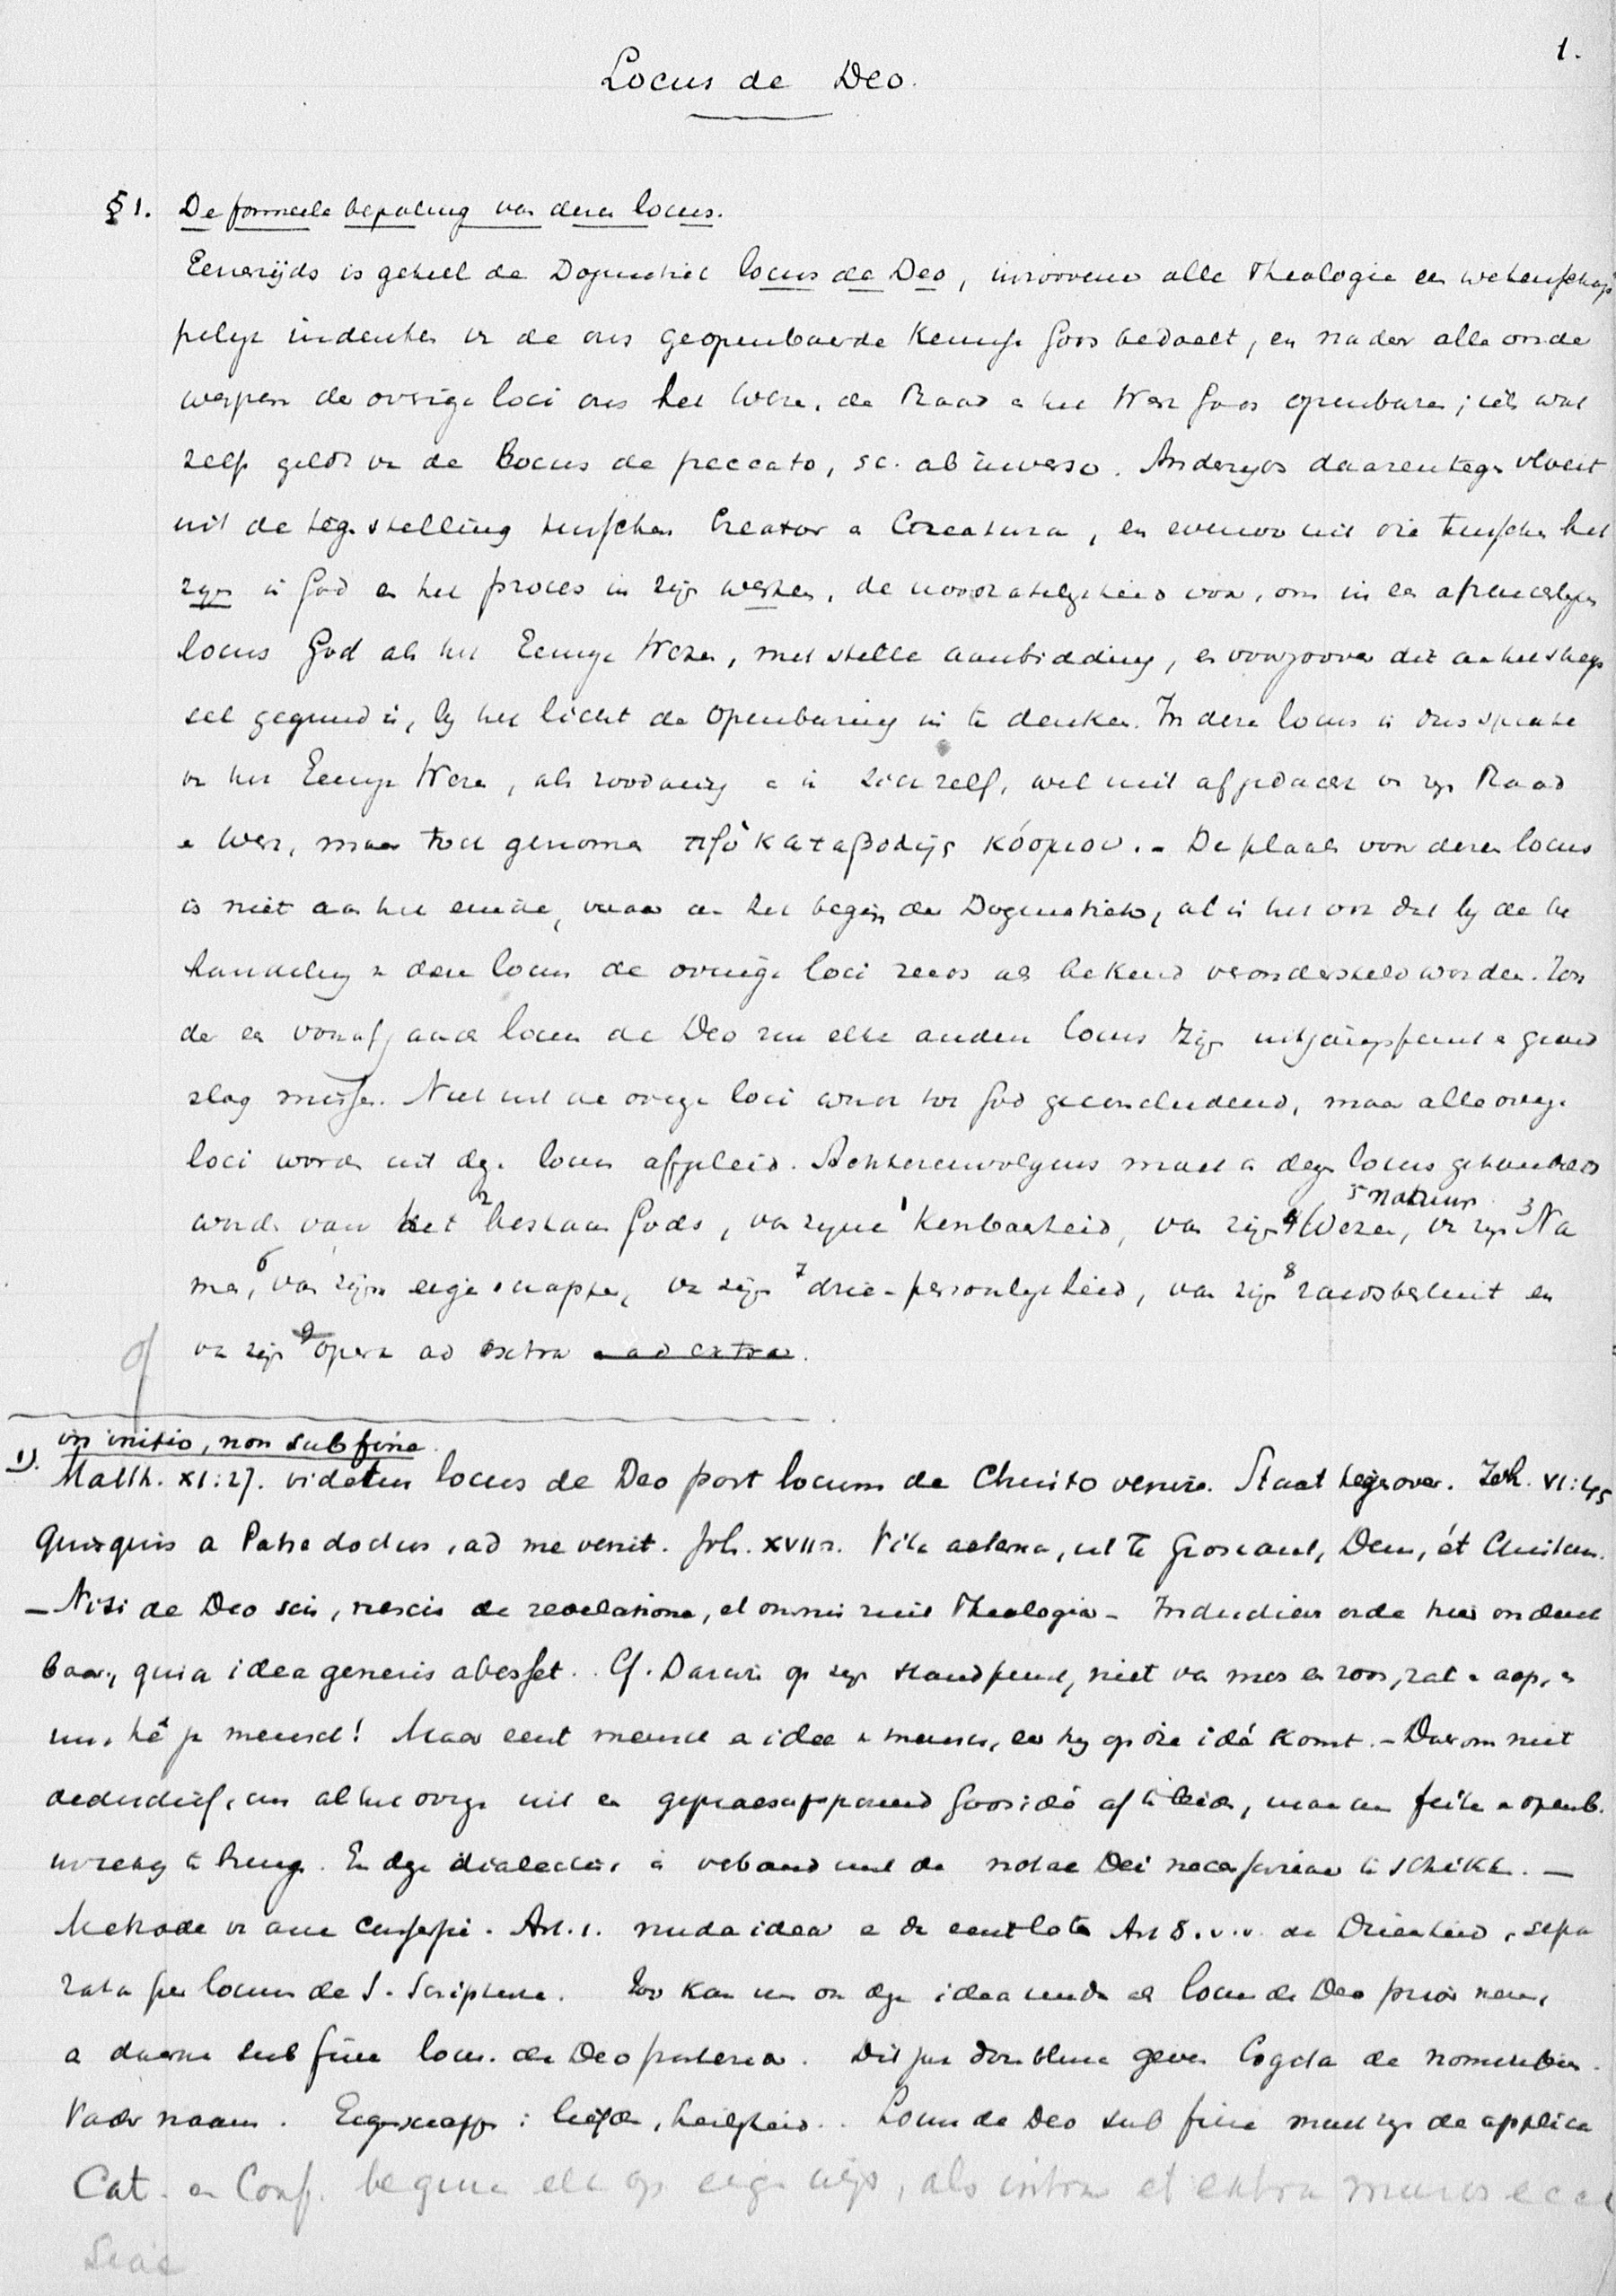 1.
Locus de Deo.
§ 1. De formeele bepaling van dezen locus.
Eenerzijds is geheel de Dogmatiek locus de Deo, inzooverre alle Theologie een wetenschap
pelijk indenken van de ons geopenbaarde kennisse Gods bedoelt, en nader alle onder
werpen der overige loci ons het Wezen, de Raad en het Werk Gods openbaren; iets wat
zelfs geldt van de Locus de peccato, sc. ab inverso. Anderzijds daarentegen vloeit
uit de tegenstelling tusschen Creator en Creatura, en evenzoo uit die tusschen het
zijn in God en het proces in zijn werken, de noodzakelijkheid voor, om in een afzonderlijken
locus God als het Eeuwige Wezen, met stille aanbidding, en voorzoover dit aan het schep
sel gegund is, bij het licht der Openbaring in te denken. In dezen locus is dus sprake
van het Eeuwige Wezen, als zoodanig en in zichzelf, wel niet afgedacht van zijn Raad
en Werk, maar toch genomen πρὸ καταβολῆς κόσμου. - De plaats voor dezen locus
is niet aan het einde, maar aan het begin der Dogmatiek, al is het ook dat bij de be
handeling van dezen locus de overige loci reeds als bekend verondersteld worden. Zon
der een voorafgaande locus de Deo zou elke andere locus zijn uitgangspunt en grond
slag missen. Niet uit de overige loci wordt tot God geconcludeerd, maar alle overige
loci worden uit dezen locus afgeleid. Achtereenvolgens moet in dezen locus gehandeld
5 natuur
worden van het 2 bestaan Gods, van zijne 1 kenbaarheid, van zijn 4 Wezen, van zijn 3 Na
men, 6 van zijn eigenschappen, van zijn 7 drie-persoonlijkheid, van zijn 8 raadsbesluit en
van zijn 9 opera ad extra en ad extra.
in initio, non sub fine.
1). Matth. XI:27. videtur locus de Deo post locum de Christo venire. Staat tegenover. Joh. VI:45
Quisquis a Patre doctus, ad me venit. Joh. XVII:3. Vita aeterna, ut Te cognoscant, Deum, ét Christum.
- Nisi de Deo scis, nescis de revelatione, et omnis ruit Theologia - Inductieve orde hier ondenk
baar, quia idea generis abesset. Cf. Darwin op zijn standpunt, niet van mos en roos, rat en aap, en
nu, heb je mensch! Maar eerst mensch en idee van mensch, eer hij op die idé komt. - Daarom niet
deductief, om al het overige uit een gepraesupponeerd Godsidé af te leiden, maar om feiten en openb.
in verband te brengen. En deze dialectisch in verband met de notae Dei necessariae te schikken. -
Methode van onze Confessie. Art. 1. nuda idea en dan eerst later Art 8. v.v. de Drieheid, sepa
rata per locum de S. Scriptura. Zoo kan men ook deze idea nuda als locus de Deo prior nemen,
en daarna sub fine locus de Deo posterior. Dit zou doublure geven. Cogita de nominibus.
Vadernaam. Eigenschappen: liefde, heiligheid.. Locus de Deo sub fine moet zijn de applica
Cat. en Conf. beginnen elk op eigen wijs, als intra et extra muros eccle
siae